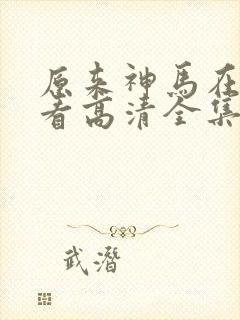 原来神马在
看高清全集
武潛